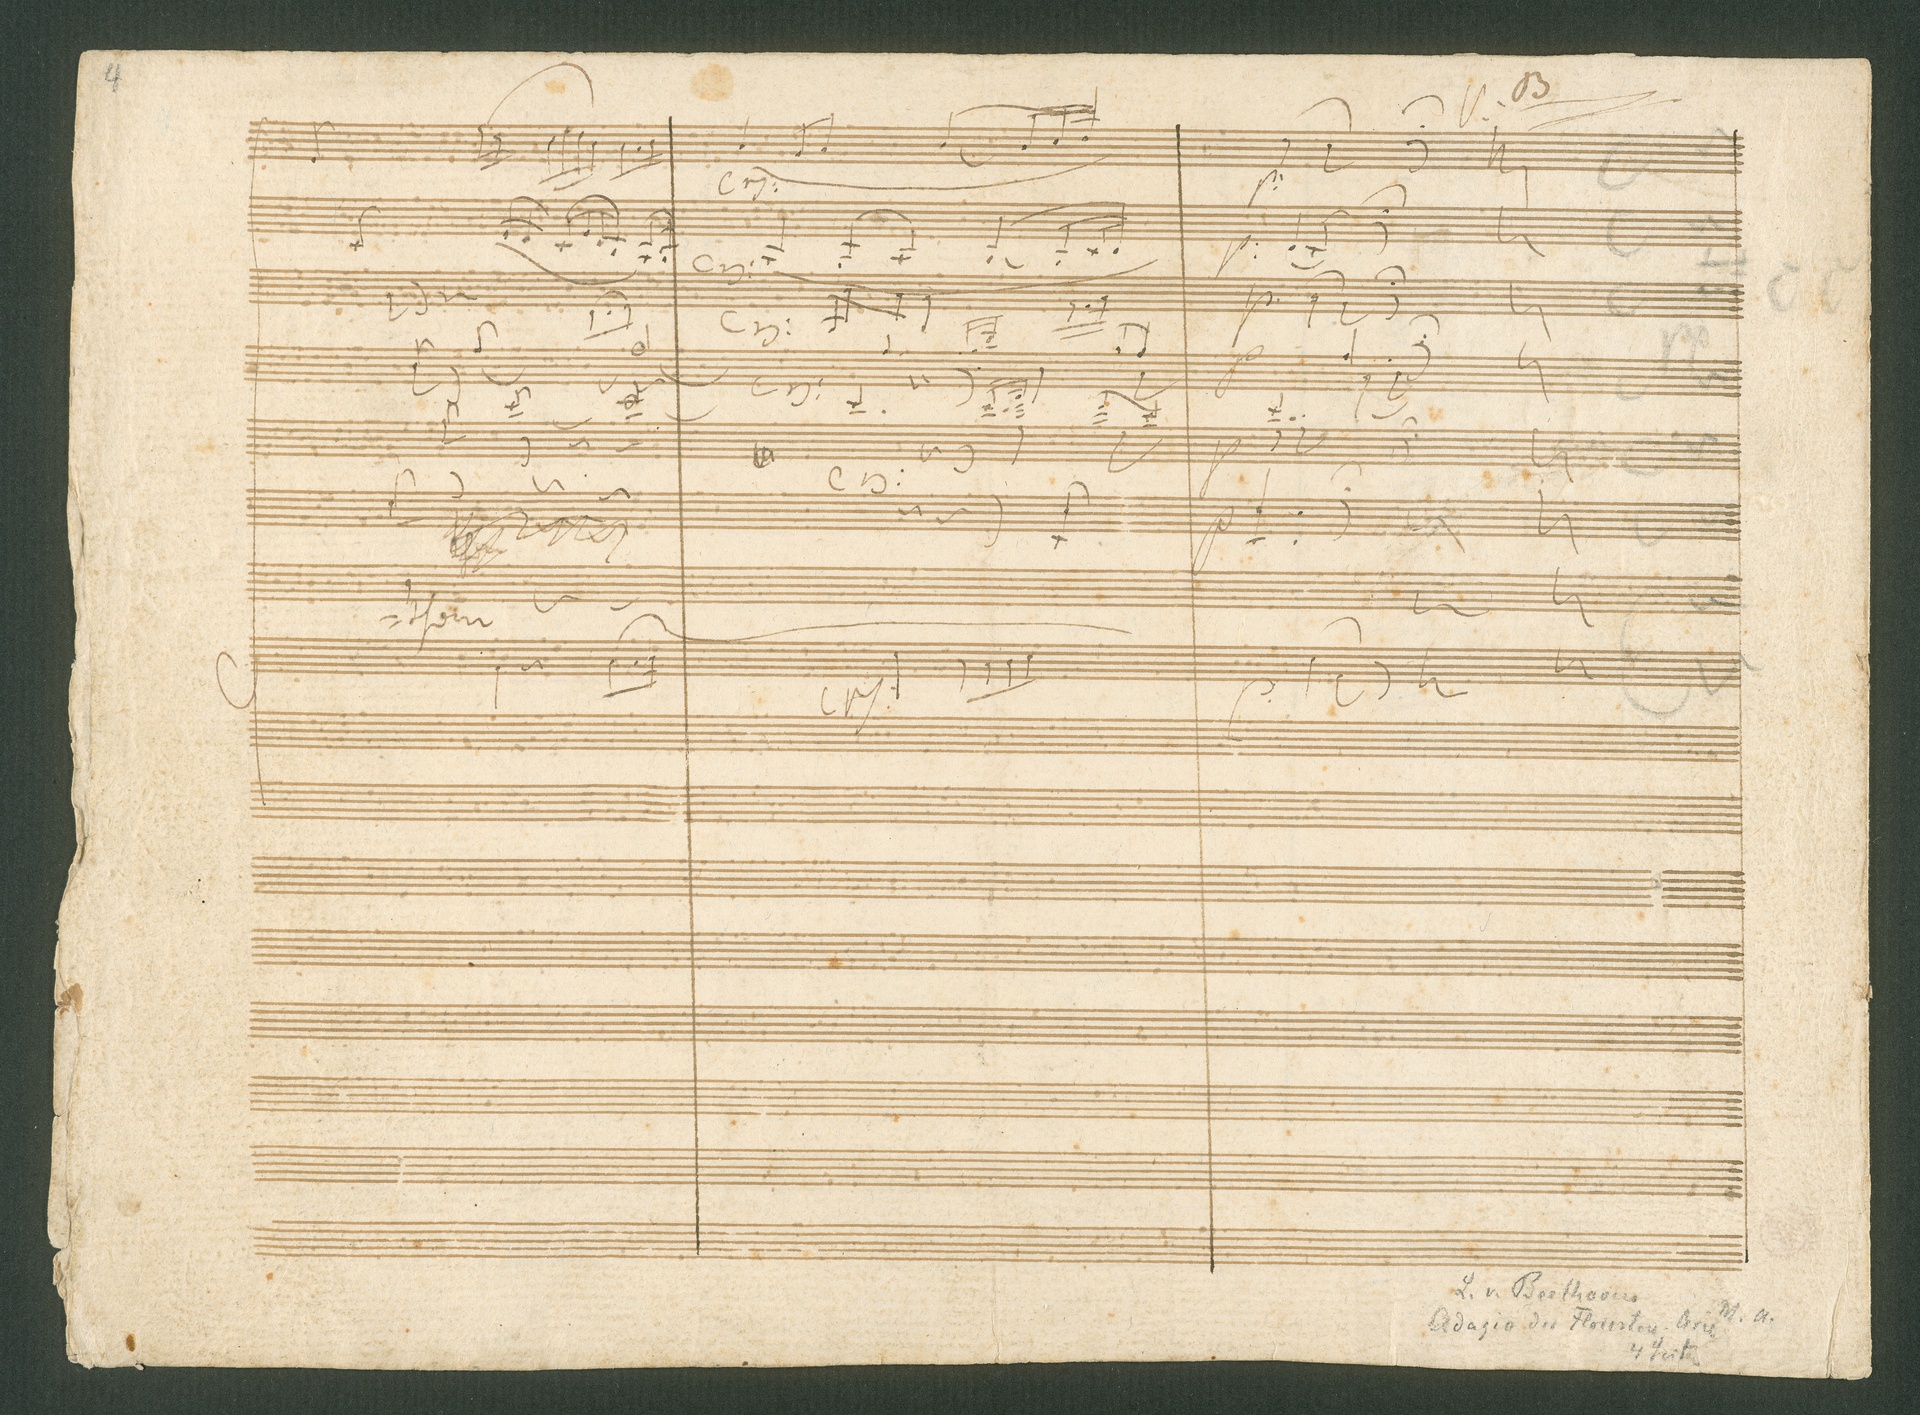 4
V: B
Cres:
p:
Cres:
p:
Cres:
p:
Cres:
p
Cres:
p
p
Horn
Cres:
p:
L. v. Beethoven
Adagio der Florestan Arie M. A.
4 Seit.